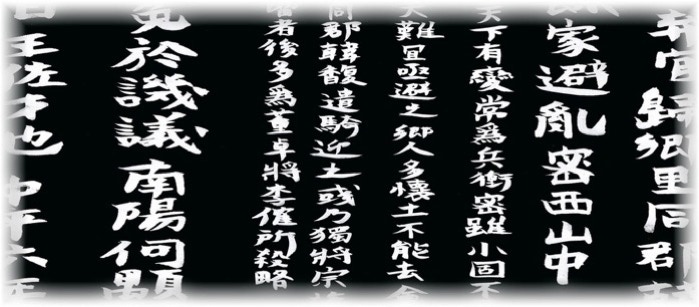 官歸鄉里同郡
家避亂密西山中
天下有變常爲兵衝密雖小固不
大難宜亟避之鄉人多懷土不能去會
同郡韓馥遣騎迎之彧乃獨將宗族
留者後多爲董卓將李傕所殺略
免於譏議南陽何顒
曰王佐才也中平六年